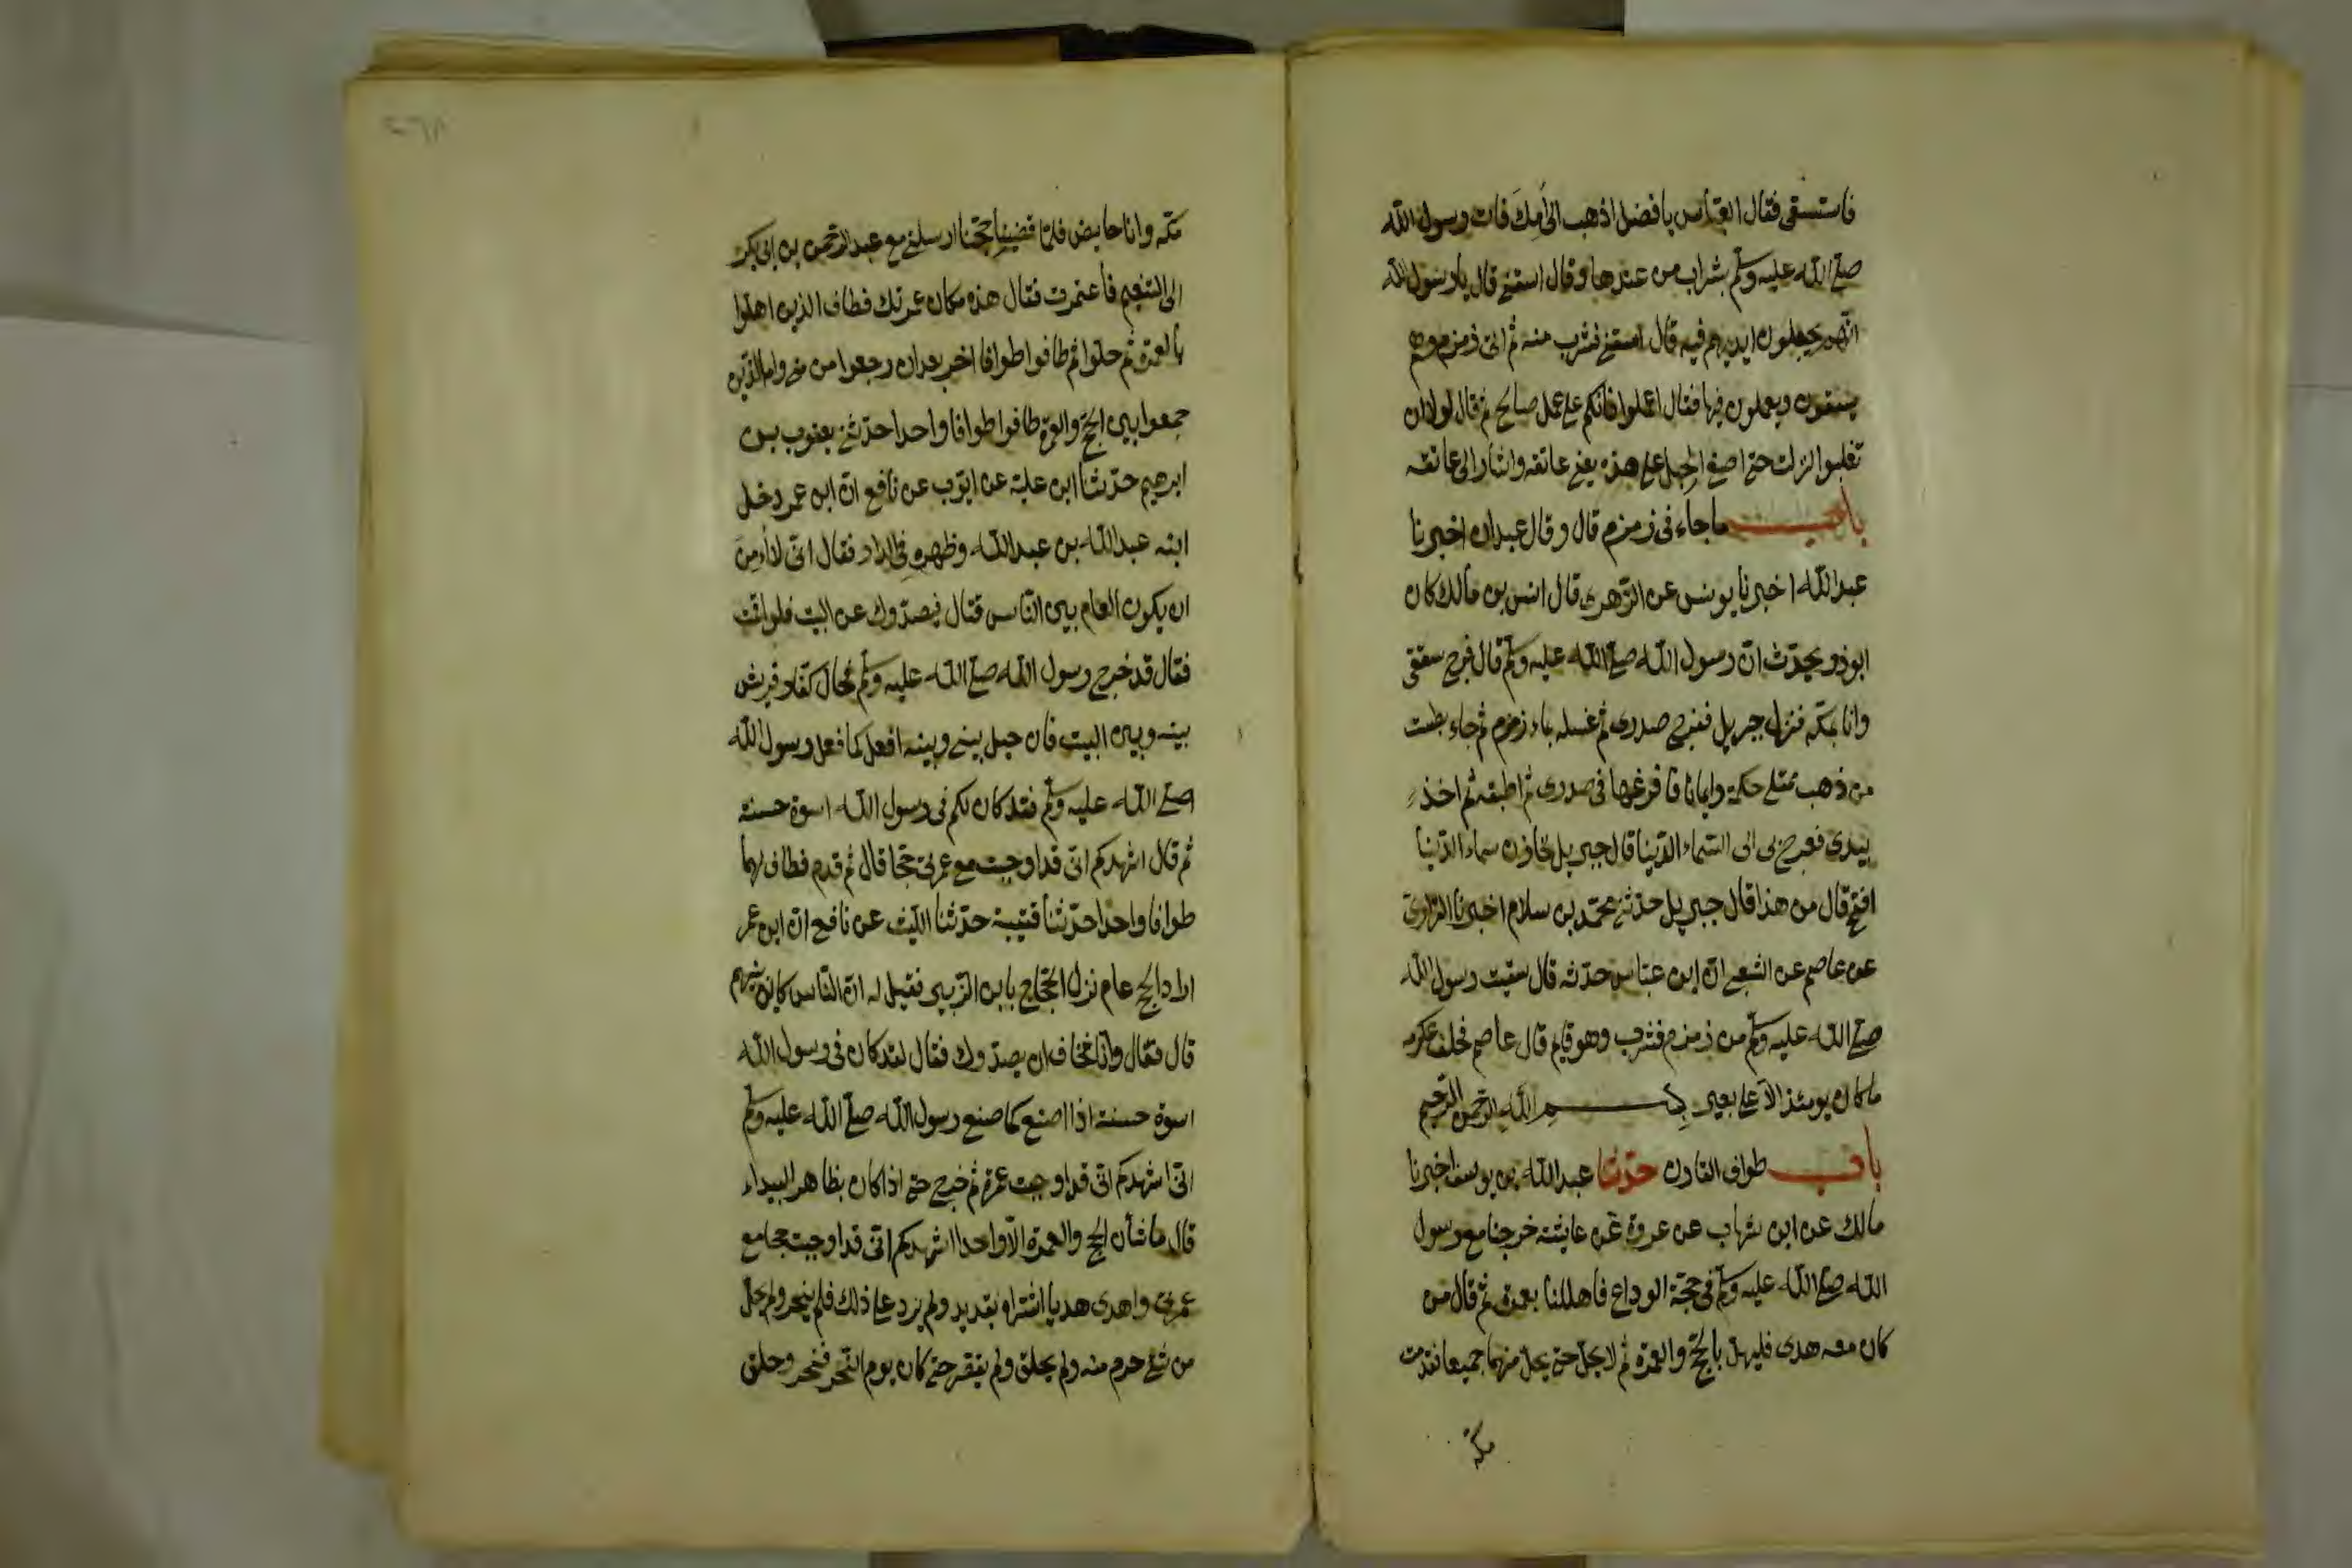 فاستسقى فقال العبّاس يا فضل اذهب الى امّك فات رسول الله
صلى الله عليه وسلم بشراب من عندها وقال اسقنى قال يا رسول الله
انّهم يجعلون ايديهم فيه قال اسقنى فشرب منه ثم اتى زمزم وهم
يسقون ويعملون فيها فقال اعملوا فانكم على عمل صالح ثم قال لولا ان
تغلبوا لنزلت حتى اضع الحبل على هذه يعنى عاتقه واشار الى عاتقه
باب ما جاء فى زمزم قال وقال عبدان اخبرنا
عبد الله اخبرنا يونس عن الزهرى قال انس بن مالك كان
ابو ذر يحدّث ان رسول الله صلى الله عليه وسلم قال فرج سقفى
وانا بمكه فنزل جبريل ففرج صدرى ثم غسله بماء زمزم ثم جاء بطست
من ذهب ممتلى حكمة وايمانا فافرغها فى صدرى ثم اطبقه ثم اخذ
بيدى فعرج بى الى السماء الدنيا قال جبريل لخازن سماء الدنيا
افتح قال من هذا قال جبريل حدثنى محمد بن سلام اخبرنا الفزاوى
عن عاصم عن الشعبى ان ابن عباس حدثه قال سقيت رسول الله
صلى الله عليه وسلم من زمزم فشرب وهو قايم قال عاصم فحلف عكرمه
ما كان يومئذ الا على بعير بسم الله الرحمن الرحيم
باب طواف القارن حدثنا عبد الله بن يوسف اخبرنا
مالك عن ابن شهاب عن عروة عن عايشه خرجنا مع رسول
الله صلى الله عليه وسلم فى حجة الوداع فاهللنا بعمرة ثم قال من
كان معه هدى فليهل بالحج والعمرة ثم لا يحل حتى يحل منهما جميعا فقدمت
مكه
مكه وانا حايض فلما قضينا حجنا ارسلنى مع عبد الرحمن بن ابى بكر
الى التنعيم فاعتمرت فقال هذه مكان عمرتك فطاف الذين اهلوا
بالعمرة ثم حلوا ثم طافوا طوافا اخر بعد ان رجعوا من منى واما الذين
جمعوا بين الحج والعمرة طافوا طوافا واحدا حدثنى يعقوب بن
ابرهيم حدثنا ابن علية عن ايوب عن نافع ان ابن عمر دخل
ابنه عبد الله بن عبد الله وظهره فى الدار فقال انى لا اءمن
ان يكون العام بين الناس قتال فيصدوك عن البيت فلو اقمت
فقال قد خرج رسول الله صلى الله عليه وسلم فحال كفار قريش
بينه وبين البيت فان حيل بينى وبينه افعل كما فعل رسول الله
صلى الله عليه وسلم فقد كان لكم فى رسول الله اسوة حسنة
ثم قال اشهدكم انى قد اوجبت مع عمرتى حجا قال ثم قدم فطاف لهما
طوافا واحدا حدثنا قتيبة حدثنا الليث عن نافع ان ابن عمر
اراد الحج عام نزل الحجاج بابن الزبير فقيل له ان الناس كاين بينهم
قال فقال وانا نخاف ان يصدوك فقال لقد كان فى رسول الله
اسوة حسنة اذا اصنع كما صنع رسول الله صلى الله عليه وسلم
انى اشهدكم انى قد اوجبت عمرة ثم خرج حتى اذا كان بظاهر البيداء
قال ما شأن الحج والعمرة الا واحد اشهدكم انى قد اوجبت حجا مع
عمرتى واهدى هديا اشتراه بقديد ولم يزد على ذلك فلم ينحر ولم يحل
من شئ حرم منه ولم يحلق ولم يقصر حتى كان يوم النحر فنحر وحلق